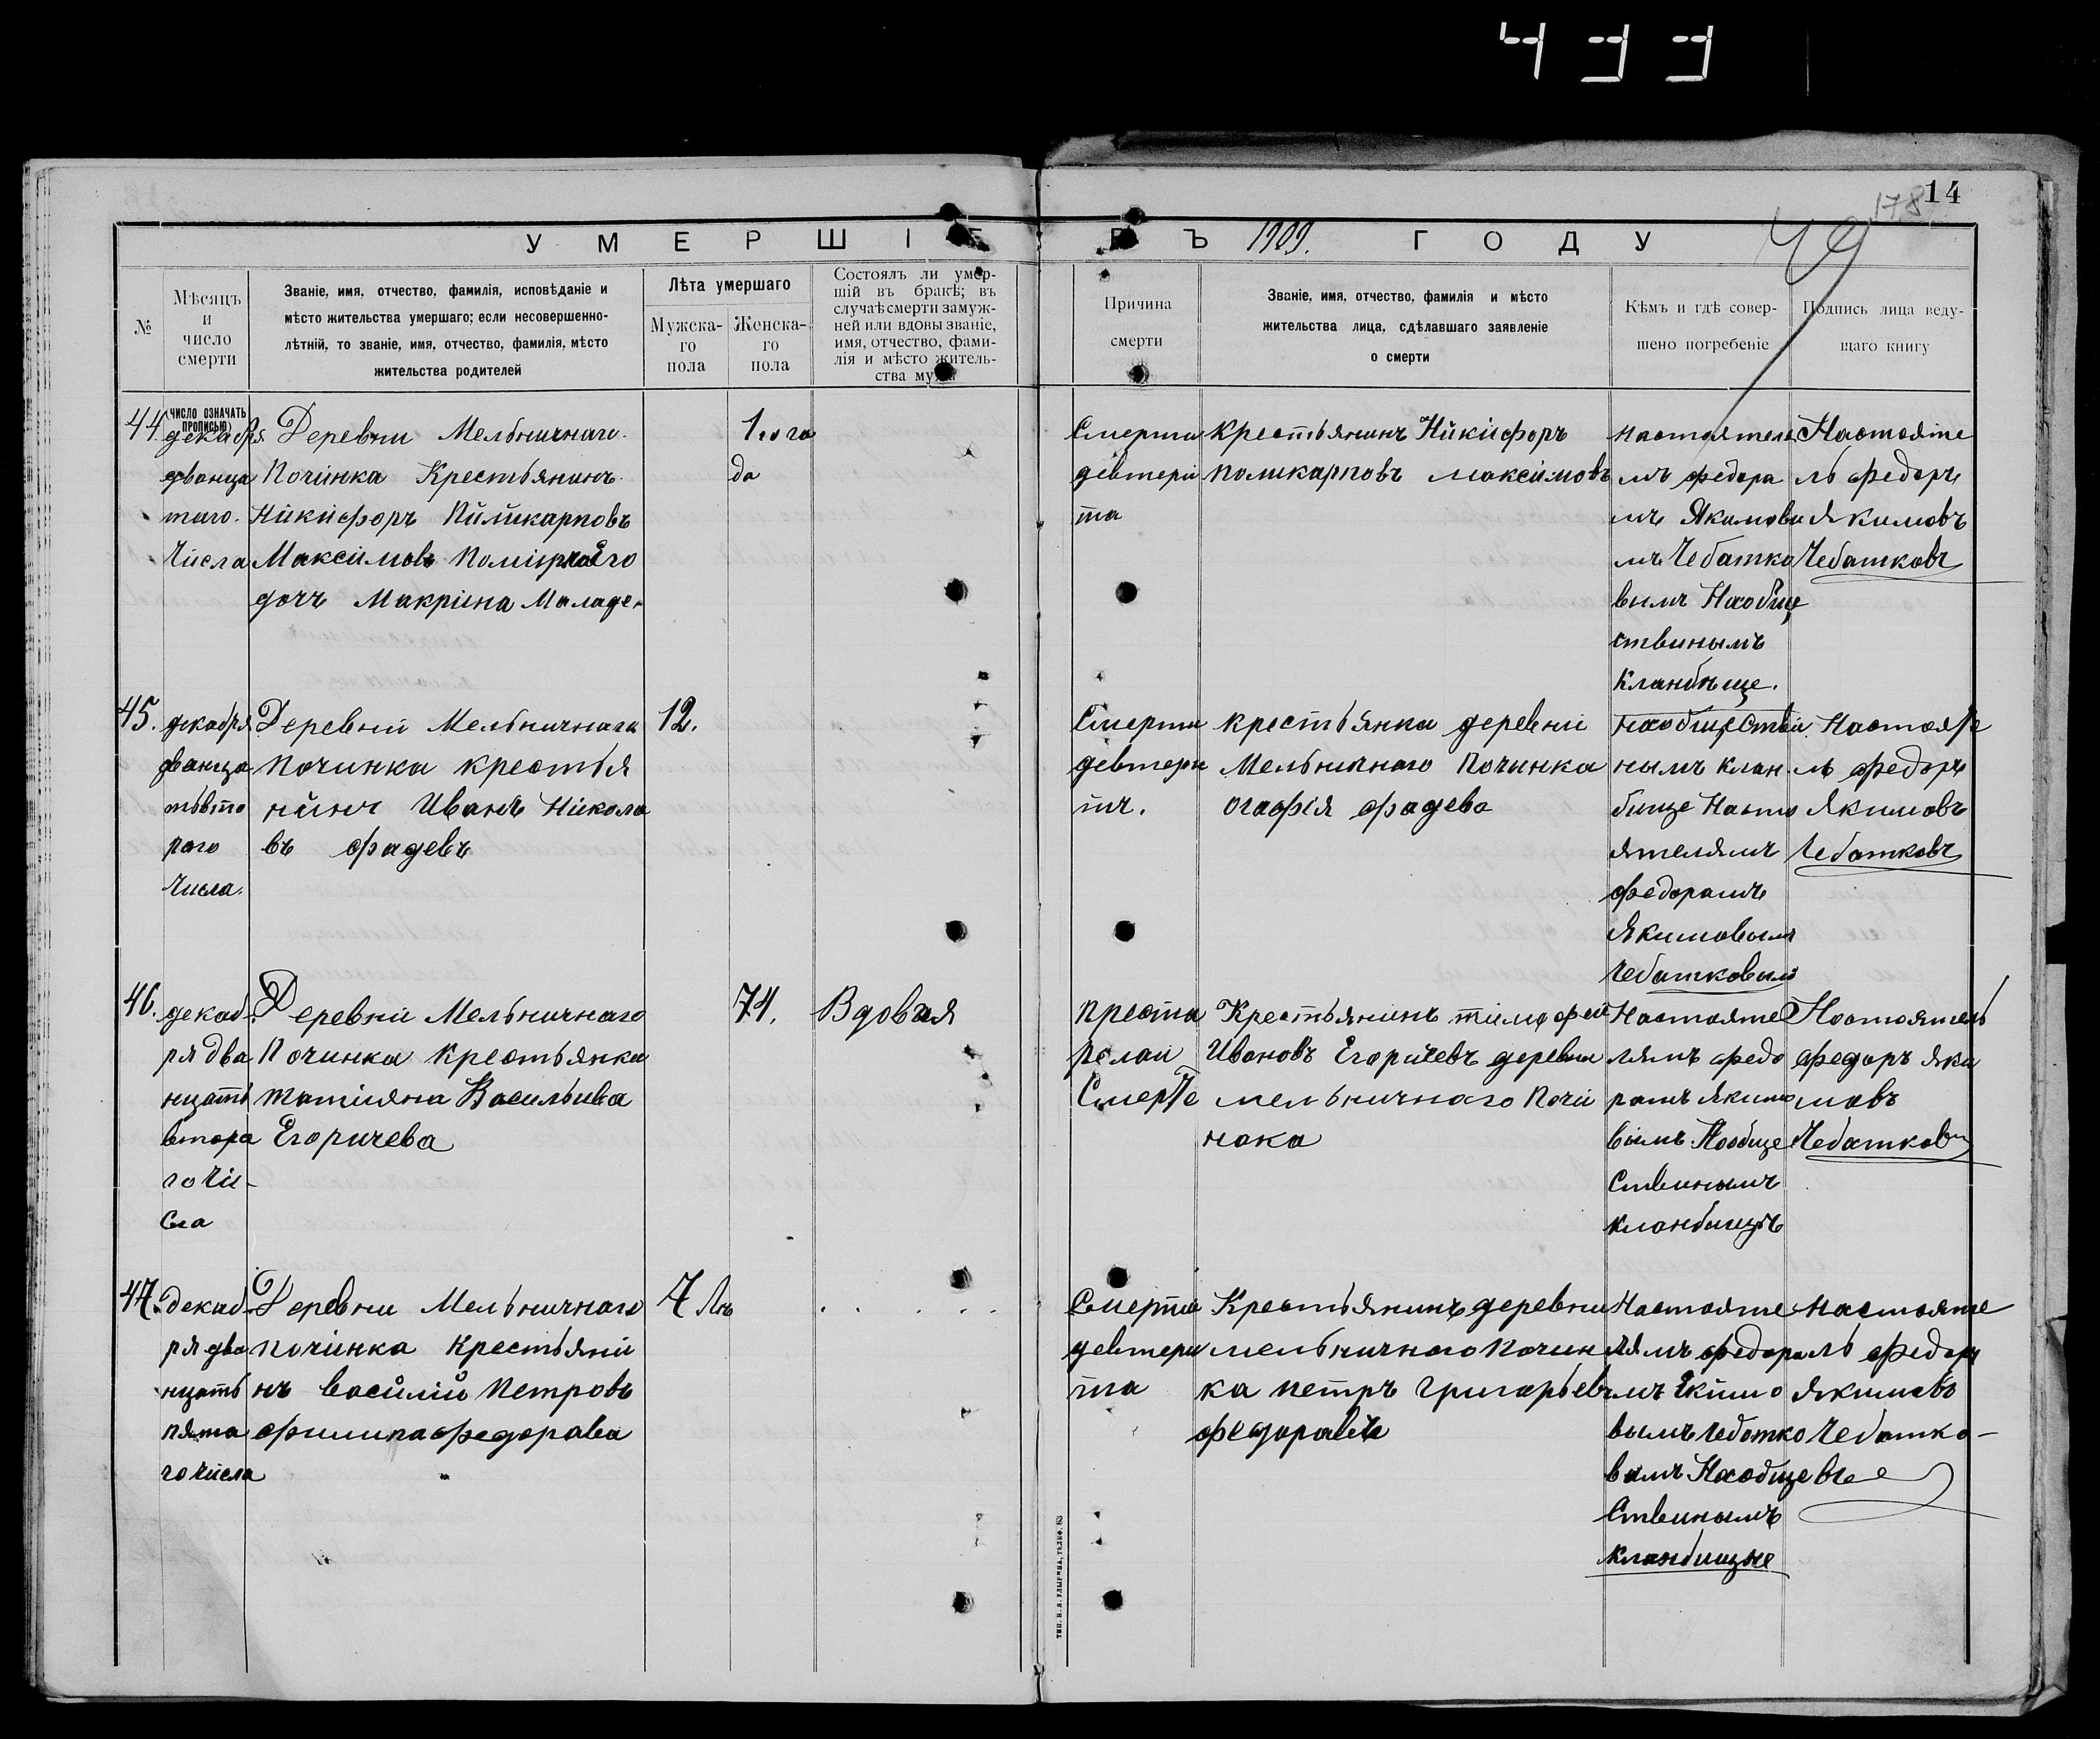 499
14
178
49
УМЕРШІЕ ВЪ 1909. ГОДУ
№
Мѣсяцъ
и
число
смерти
Званіе, имя, отчество, фамилія, исповѣданіе и
мѣсто жительства умершаго; если несовершенно-
лѣтній, то званіе, имя, отчество, фамилія, мѣсто
жительства родителей
Лѣта умершаго
Мужска-
го
пола
Женска-
го
пола
Состоялъ ли умер-
шій въ бракѣ; въ
случаѣ смерти замуж-
ней или вдовы званіе,
имя, отчество, фами-
лія и мѣсто житель-
ства мужа
Причина
смерти
Званіе, имя, отчество, фамилія и мѣсто
жительства лица, сдѣлавшаго заявленіе
о смерти
Кѣмъ и гдѣ совер-
шено погребеніе
Подпись лица веду-
щаго книгу
(число означать
прописью)
44.
декабря
дванца
таго.
Числа
Деревни Мельничнаго
Почінка Крестьянинъ
Никифоръ Поликарповъ
Максимовъ
дочъ Макріина Маладе.
1. го го
да
Смерти
девтери
та
Крестьянинъ Никифоръ
поликарповъ максимовъ
настоятеле
мъ федора
мъ Якимовы
мъ Чебатко
вымъ Наобще
ствинымъ
Кланбище.
Настояте
ль федоръ
Якимовъ
Чебатковъ
45.
декабря
дванца
тьвто
раго
Числа.
Деревни Мельничнага
Починка крестья
нинъ Иванъ Никола
въ фадевъ
12.
Смерти
девтери
тъ.
крестьянка деревни
Мельничнаго Починка
огафія фадева
наобществи
нымъ клан-
бище Насто
ятелямъ
федорамъ
Якимовымъ
Чебатковым
Настояте
ль федоръ
Якимовъ
Чебатковъ
46.
декаб-
ря два
нцать
втора
го Чи-
сла
Деревни Мельничнаго
Починка Крестьянка
Татияна Васильива
Егоричева
74.
Вдовая
преста
релаи
Смерте
Крестьянинъ тимофеи
Ивановъ Егоричевъ деревни
мельничнаго Почи
нака
Настояте
лямъ федо
рамъ якимо
вымъ Наобще
Ствинымъ
кланбищъ
Настоятель
федоръ Яки
мовъ
Чебатковъ
47.
декаб-
ря два
нцать
пята
го числа
Деревни Мельничнаго
почінка Крестьяни
нъ василий Петровъ
7 Лѣ
. . . . .
Смерти
девтери
та
Крестьянинъ деревни
мельничнаго Почин
ка петръ Григорьевъ
федоравъ
Настояте
лямъ федора
мъ Якимо
вымъ Чебатко
вымъ Наобще
Ствинымъ
кланбище
настояте
ль федоръ
якимовъ
Чебатко-
въ